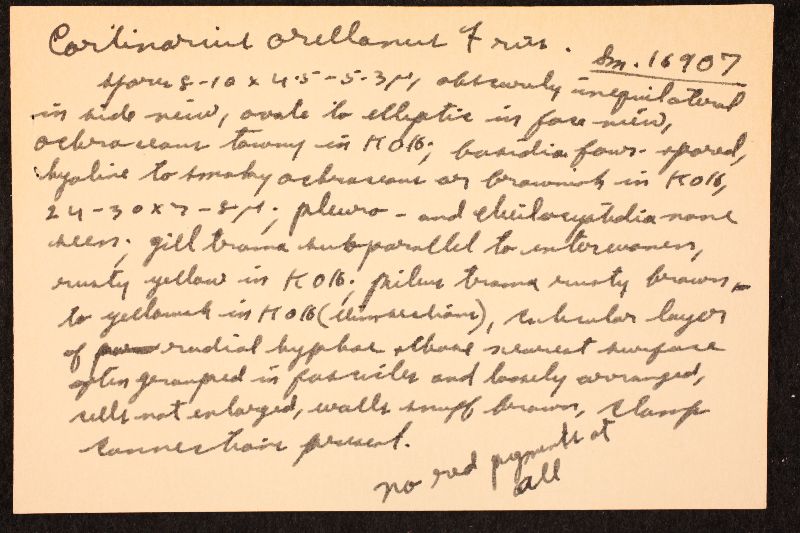 Cortinarius orellanus Fries.
Sm. 16907
spores 8-10 x 4.5-5.3µ, obscurely inequilateral
in side view, ovate to elliptic in face view,
ochraceous tawny in KOH; basidia four-spored,
hyaline to smoky ochraceous or brownish in KOH,
24-30 x 7-8µ; pleuro- and cheilocystidia none
seen; gill trama subparallel to interwoven,
rusty yellow in KOH; pileus trama rusty brown
to yellowish in KOH (thin sections), cuticular layer
of radial hyphae, those nearest surface
often grouped in fascicles and loosely arranged,
cells not enlarged, walls snuff brown, clamp
connections present.
no red pigments at
all